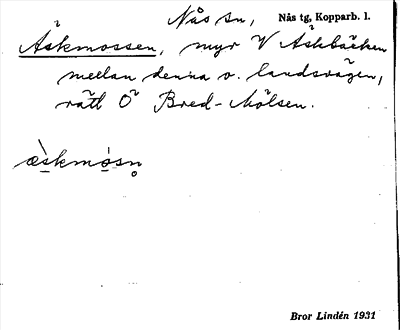 Nås sn, Nås tg, Kopparb. l.
Äskmossen, myr V Äskbäcken
mellan denna o. landsvägen,
rätt Ö Bred-Mölsen.
æ̀skmòsn̥
Bror Lindén 1931